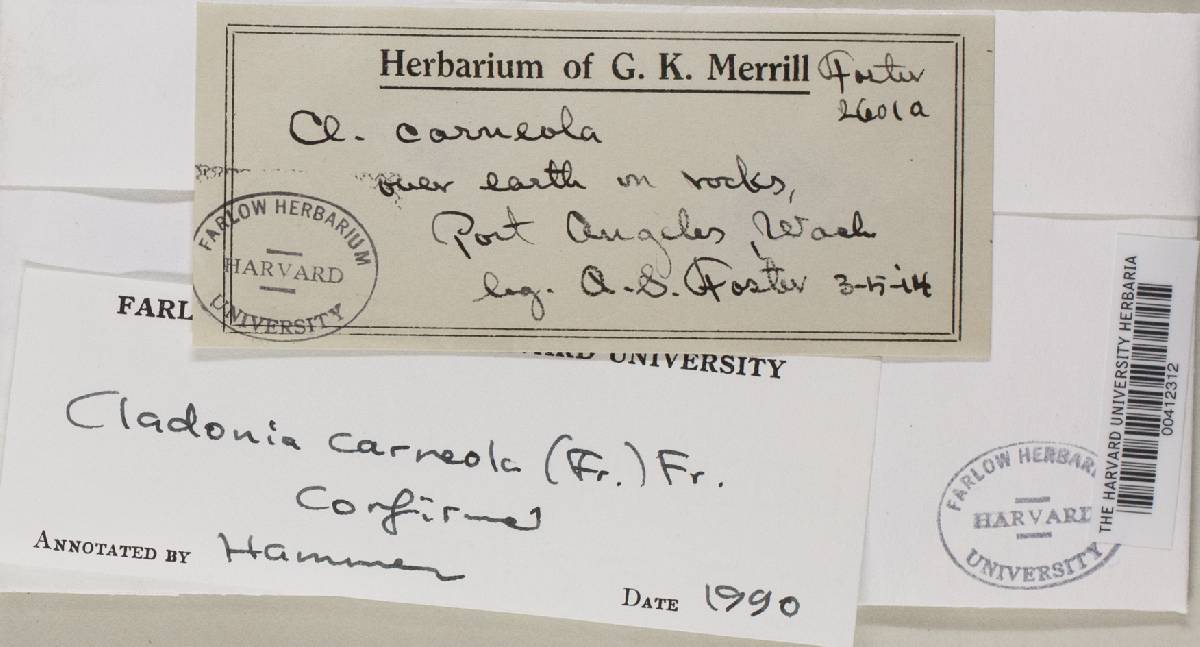 Herbarium of G. K. Merrill Foster
2601a
Cl. carneola
over earth on rocks,
Port Angeles, Wash
leg. A. S. Foster 3-15-14
FARLOW HERBARIUM
HARVARD
UNIVERSITY
FARL
UNIVERSITY
Cladonia carneola (Fr.) Fr.
Confirmed
ANNOTATED BY Hammer
DATE 1990
FARLOW HERBAR
HARVARD
UNIVERSITY
THE HARVARD UNIVERSITY HERBARIA
00412312